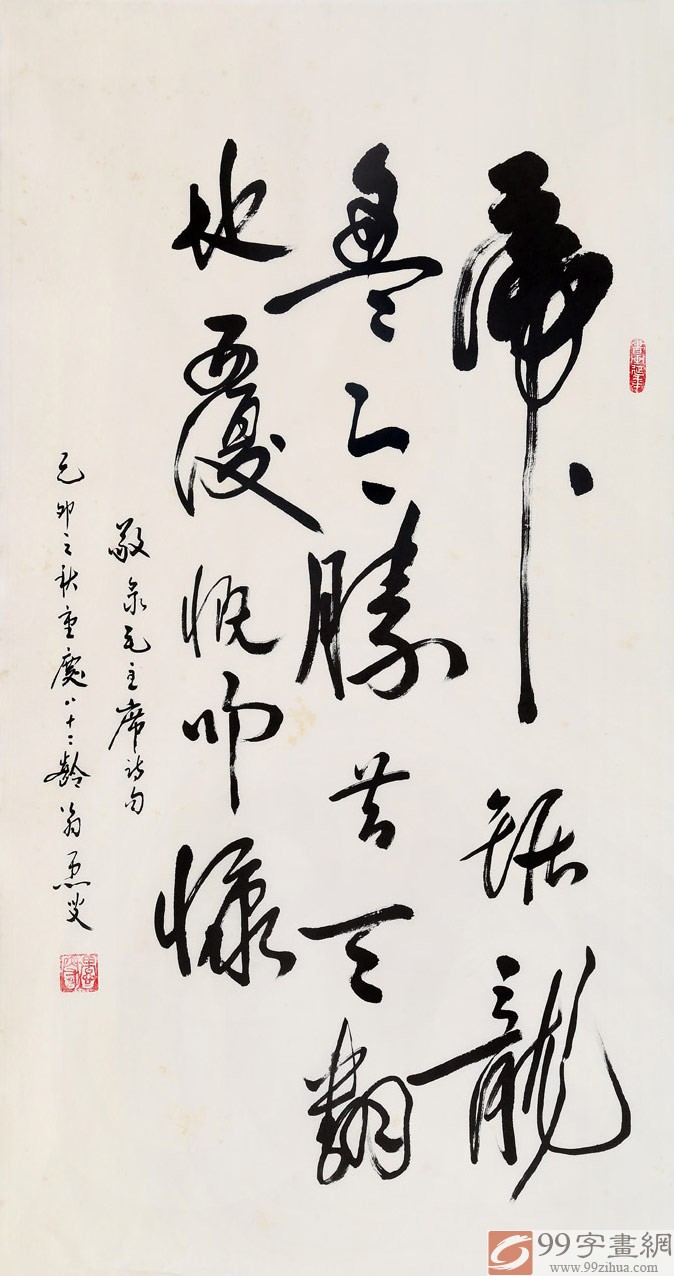 虎踞龍
盤今勝昔天翻
地覆慨而慷
敬录毛主席诗句
己卯之秋重慶八十二齡翁叟
99字畫網
www.99zihua.com